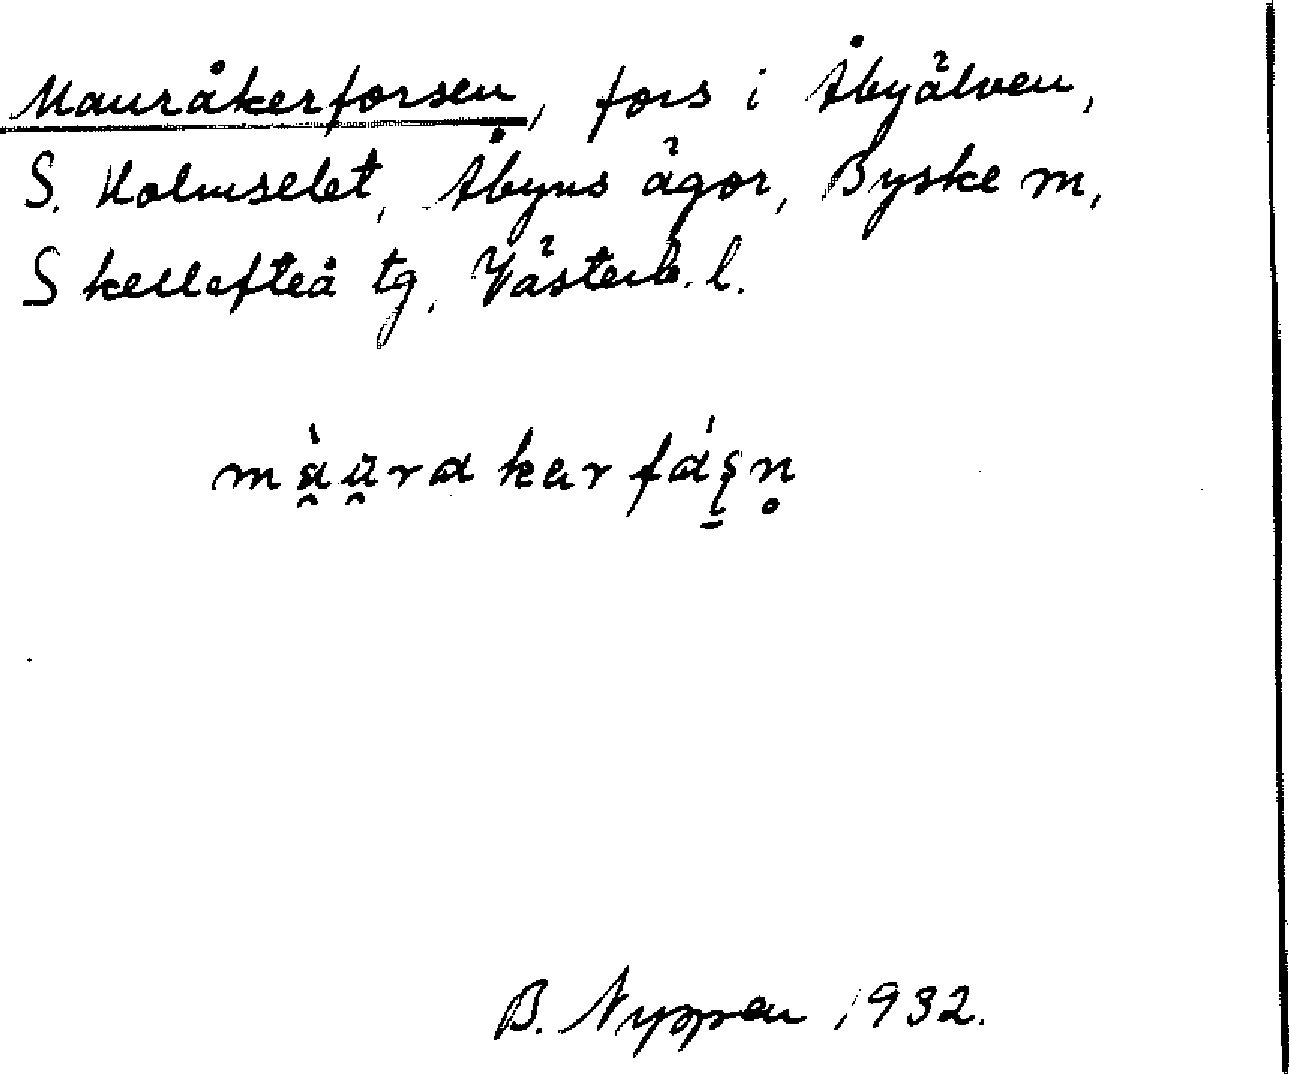 Mauråkerforsen, fors i Åbyälven,
S. Holmselet, Åbyns ägor, Byske m,
Skellefteå tg, Västerb. l.
màu̯rakerfáʂn̥
B. Nyppen 1932.